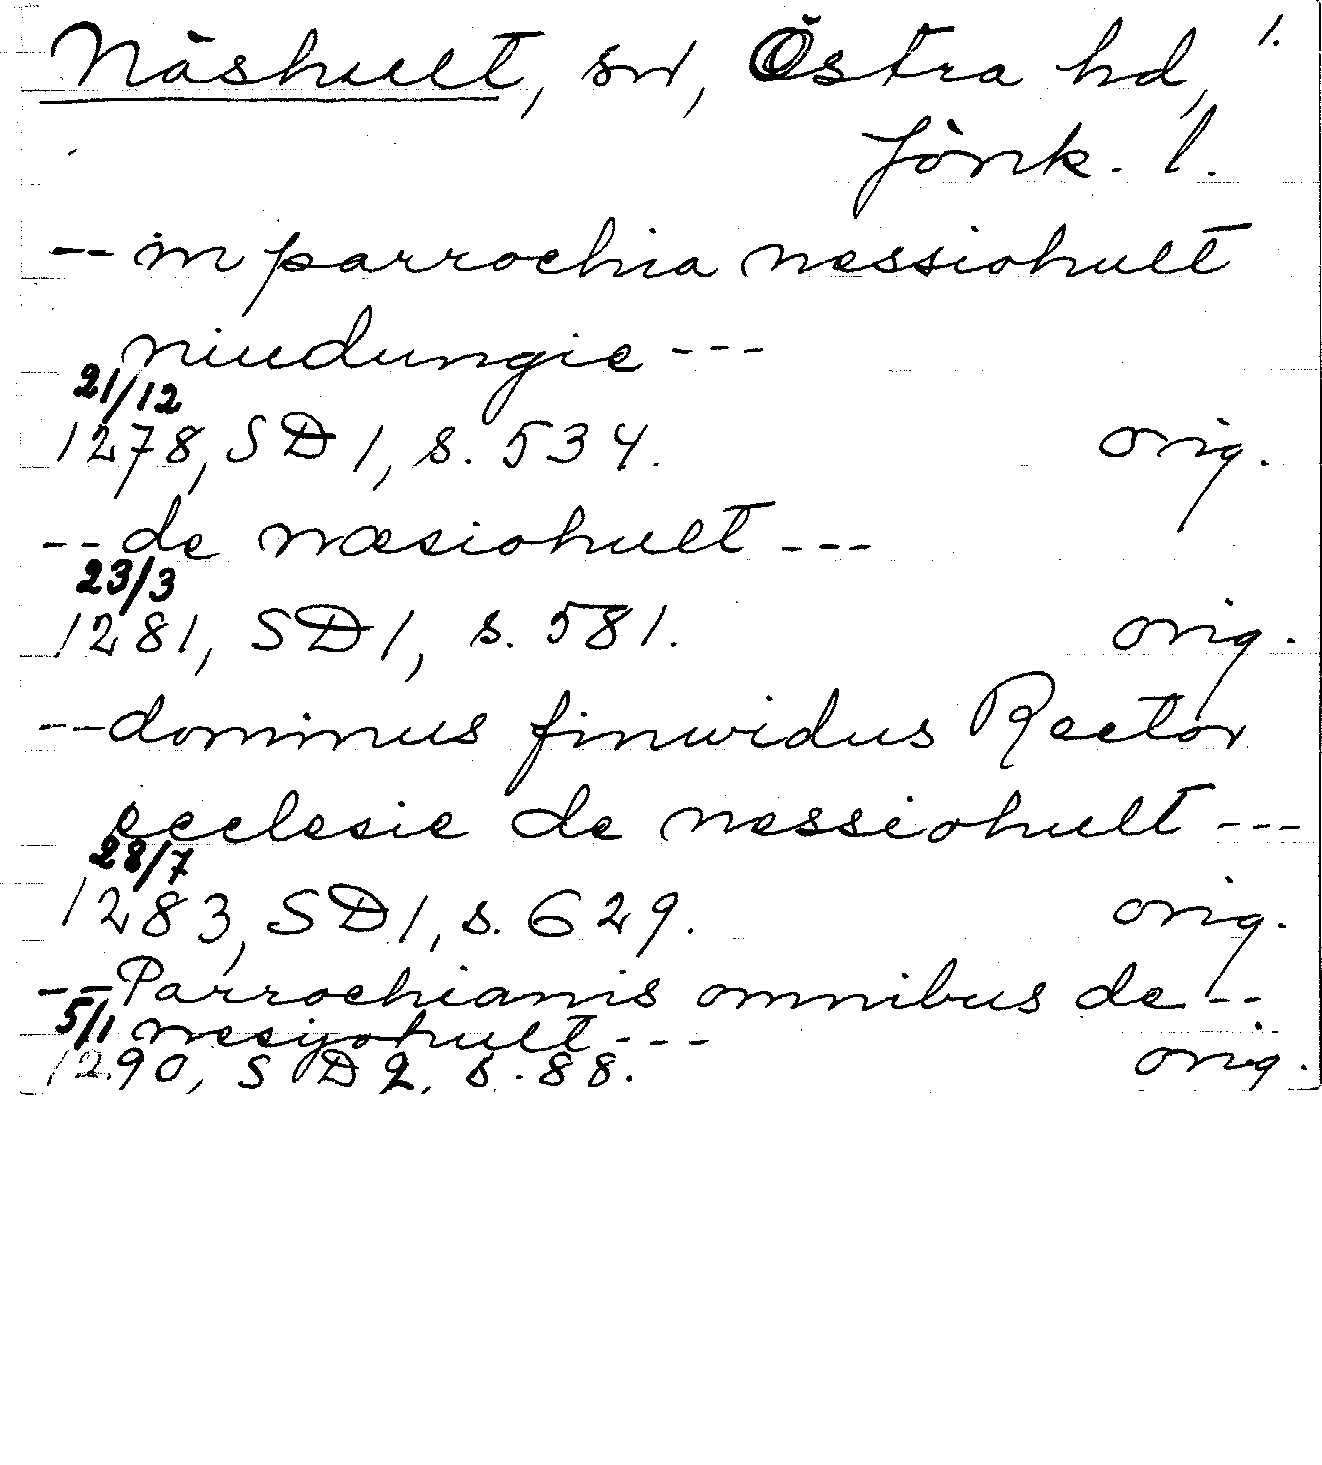 Näshult, sn, Östra hd, 1.
Jönk. l.
-- in parrochia nessiohult
niudungie ---
21/12
1278, SD 1, s. 534. orig.
-- de næsiohult ---
23/3
1281, SD 1, s. 581. orig.
-- dominus finuidus Rector
ecclesie de nessiohult ---
28/7
1283, SD 1, s. 629. orig.
-- Parrochianis omnibus de --
5/1 nesyohult ---
1290, SD 2, s. 88. orig.